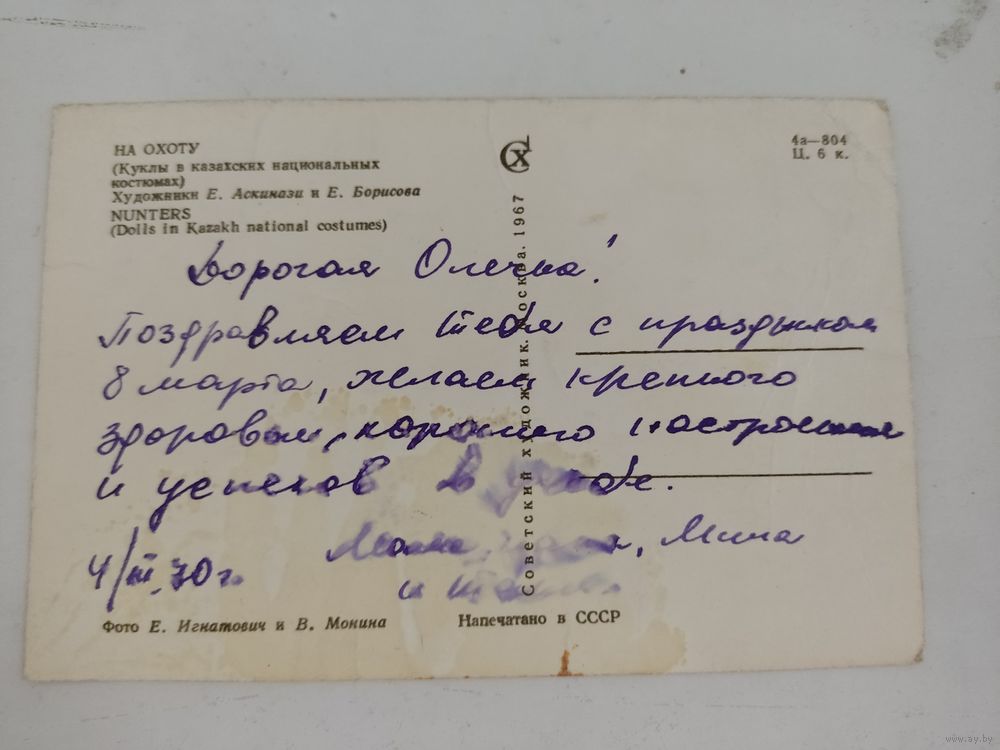 НА ОХОТУ
(Куклы в казахских национальных
костюмах)
Художники Е. Аскинази и Е. Борисова
NUNTERS
(Dolls in Kazakh national costumes)
4а—804
Ц. 6 к.
Советский художник. Москва. 1967
Дорогая Олечка!
Поздравляем тебя с праздником
8 марта, желаем крепкого
здоровья, хорошего настроения
и успехов в учебе.
Мама, папа, Миша
и
4/III.70 г.
Фото Е. Игнатович и В. Монина
Напечатано в СССР
www.ay.by